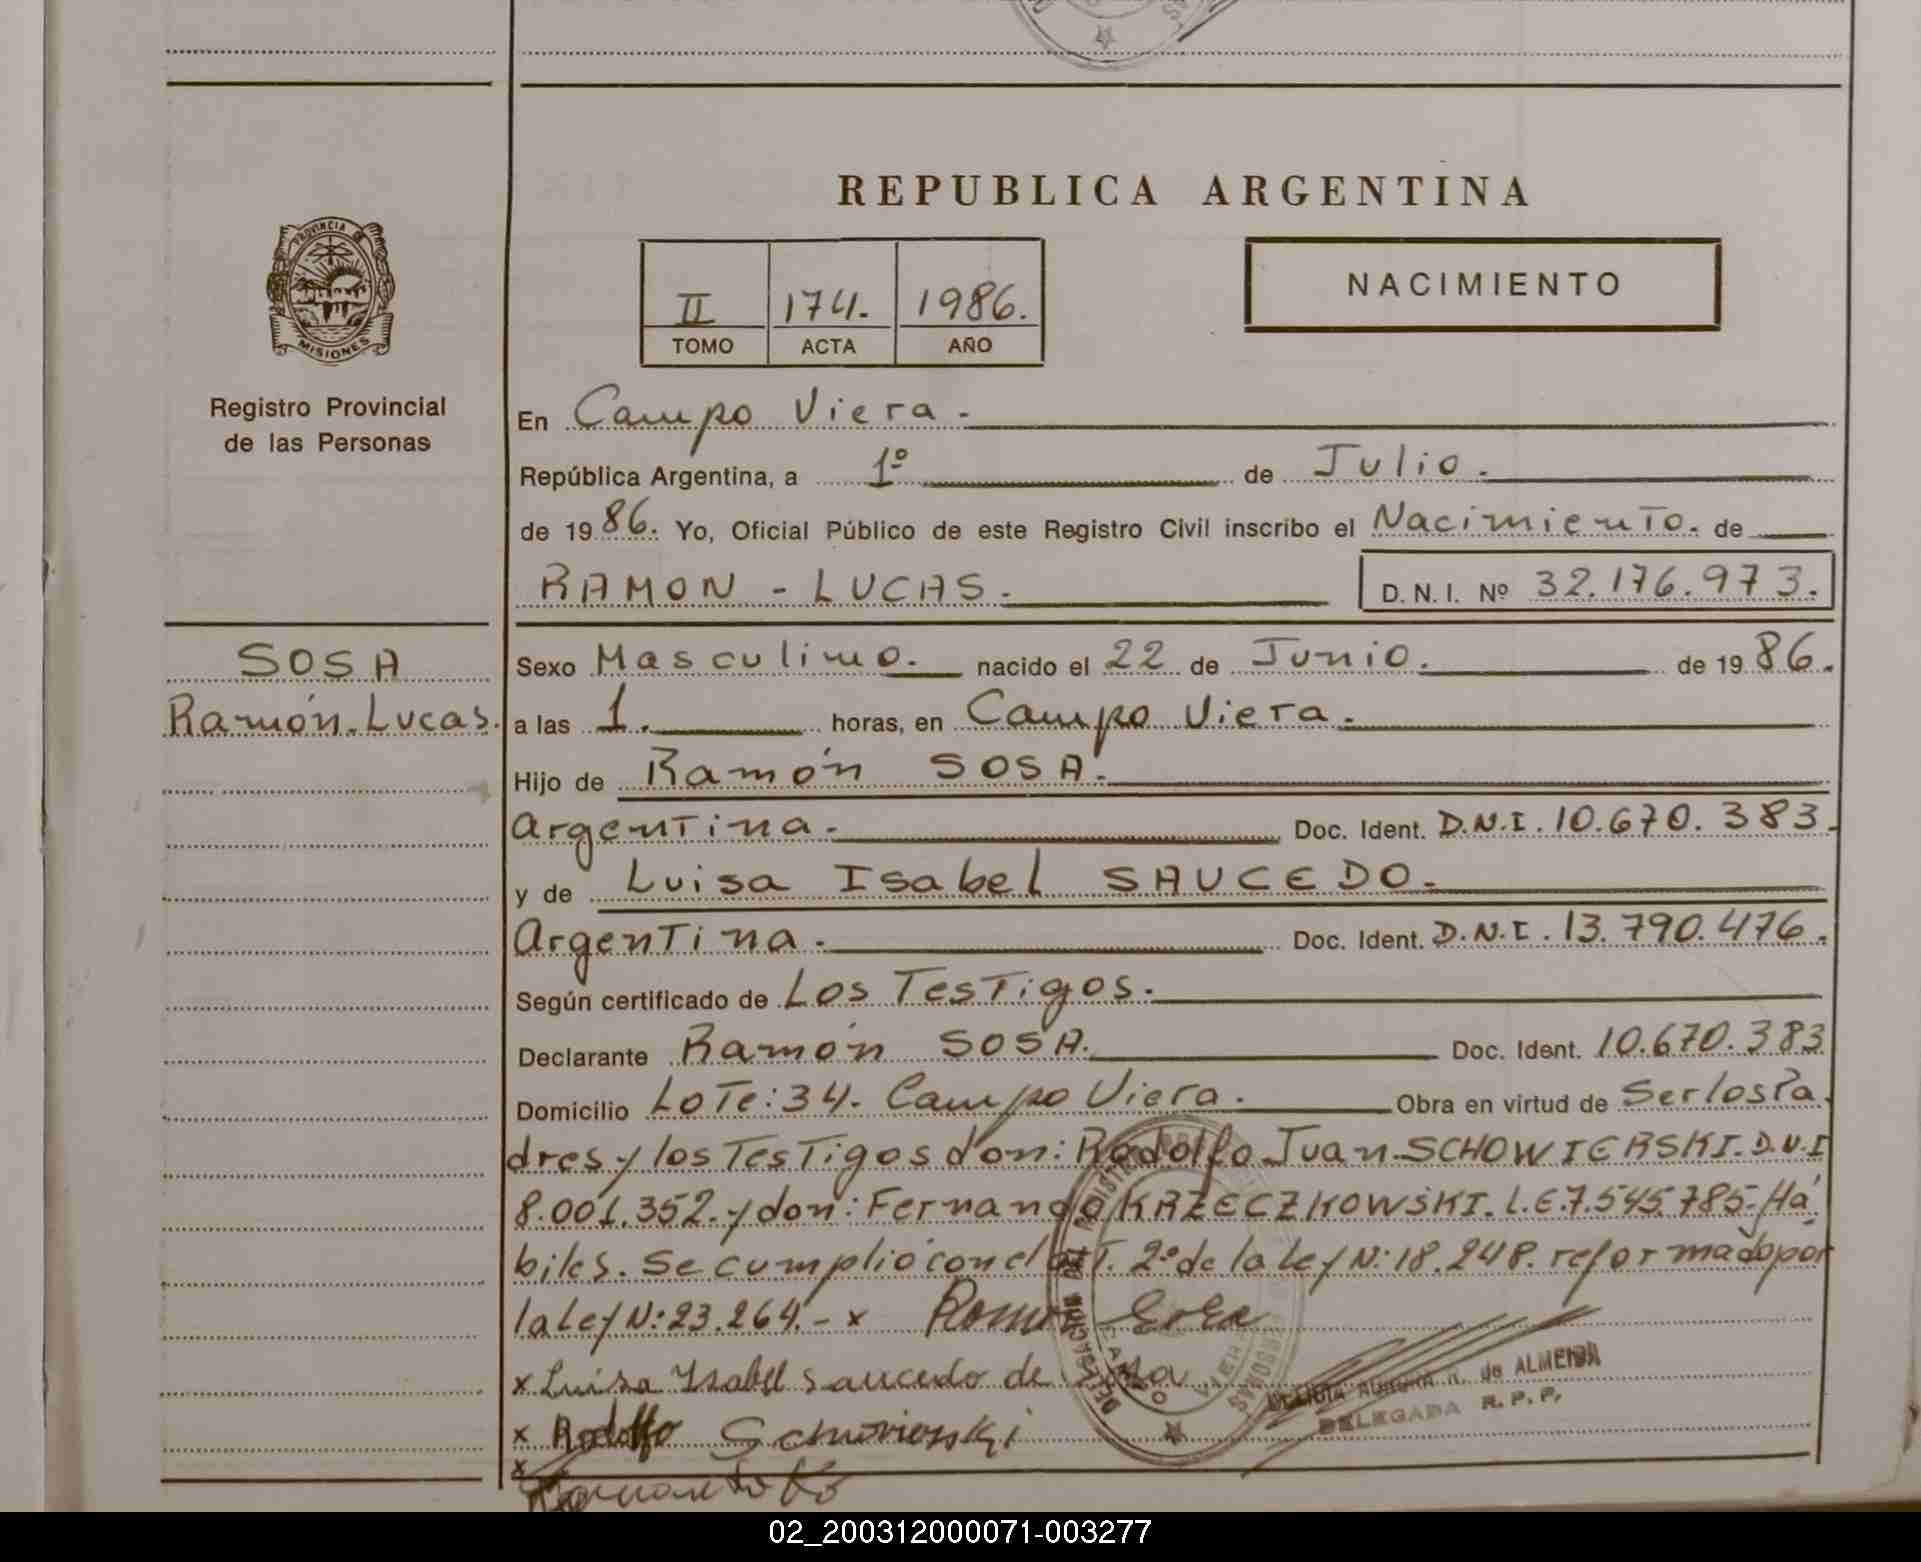 REPUBLICA ARGENTINA
PROVINCIA DE
MISIONES
Registro Provincial
de las Personas
II 174. 1986.
TOMO ACTA AÑO
NACIMIENTO
En Campo Viera.
República Argentina, a 1º de Julio.
de 1986. Yo, Oficial Público de este Registro Civil inscribo el Nacimiento. de
RAMON - LUCAS. D. N. I. Nº 32.176.973.
SOSA
Ramón. Lucas.
Sexo Masculino. nacido el 22 de Junio. de 1986.
a las 1. horas, en Campo Viera.
Hijo de Ramón SOSA.
Argentina. Doc. Ident. D.N.I. 10.670.383.
y de Luisa Isabel SAUCEDO.
Argentina. Doc. Ident. D.N.I. 13.790.476.
Según certificado de Los Testigos.
Declarante Ramón SOSA. Doc. Ident. 10.670.383
Domicilio Lote: 34. Campo Viera. Obra en virtud de Ser los Pa
dres y los Testigos don: Rodolfo Juan SCHOWIERSKI. D.N.I
8.001.352. y don: Fernando KRZECZKOWSKI. L.E. 7.545.785. Há
biles. Se cumplió con el T. 2º de la Ley N: 18.248. reformado por
la Ley N: 23.264. - x
x Luisa Ysabel saucedo de
x Rodolfo
x
AURORA R. de ALMEIDA
DELEGADA R. P. P.
02_200312000071-003277